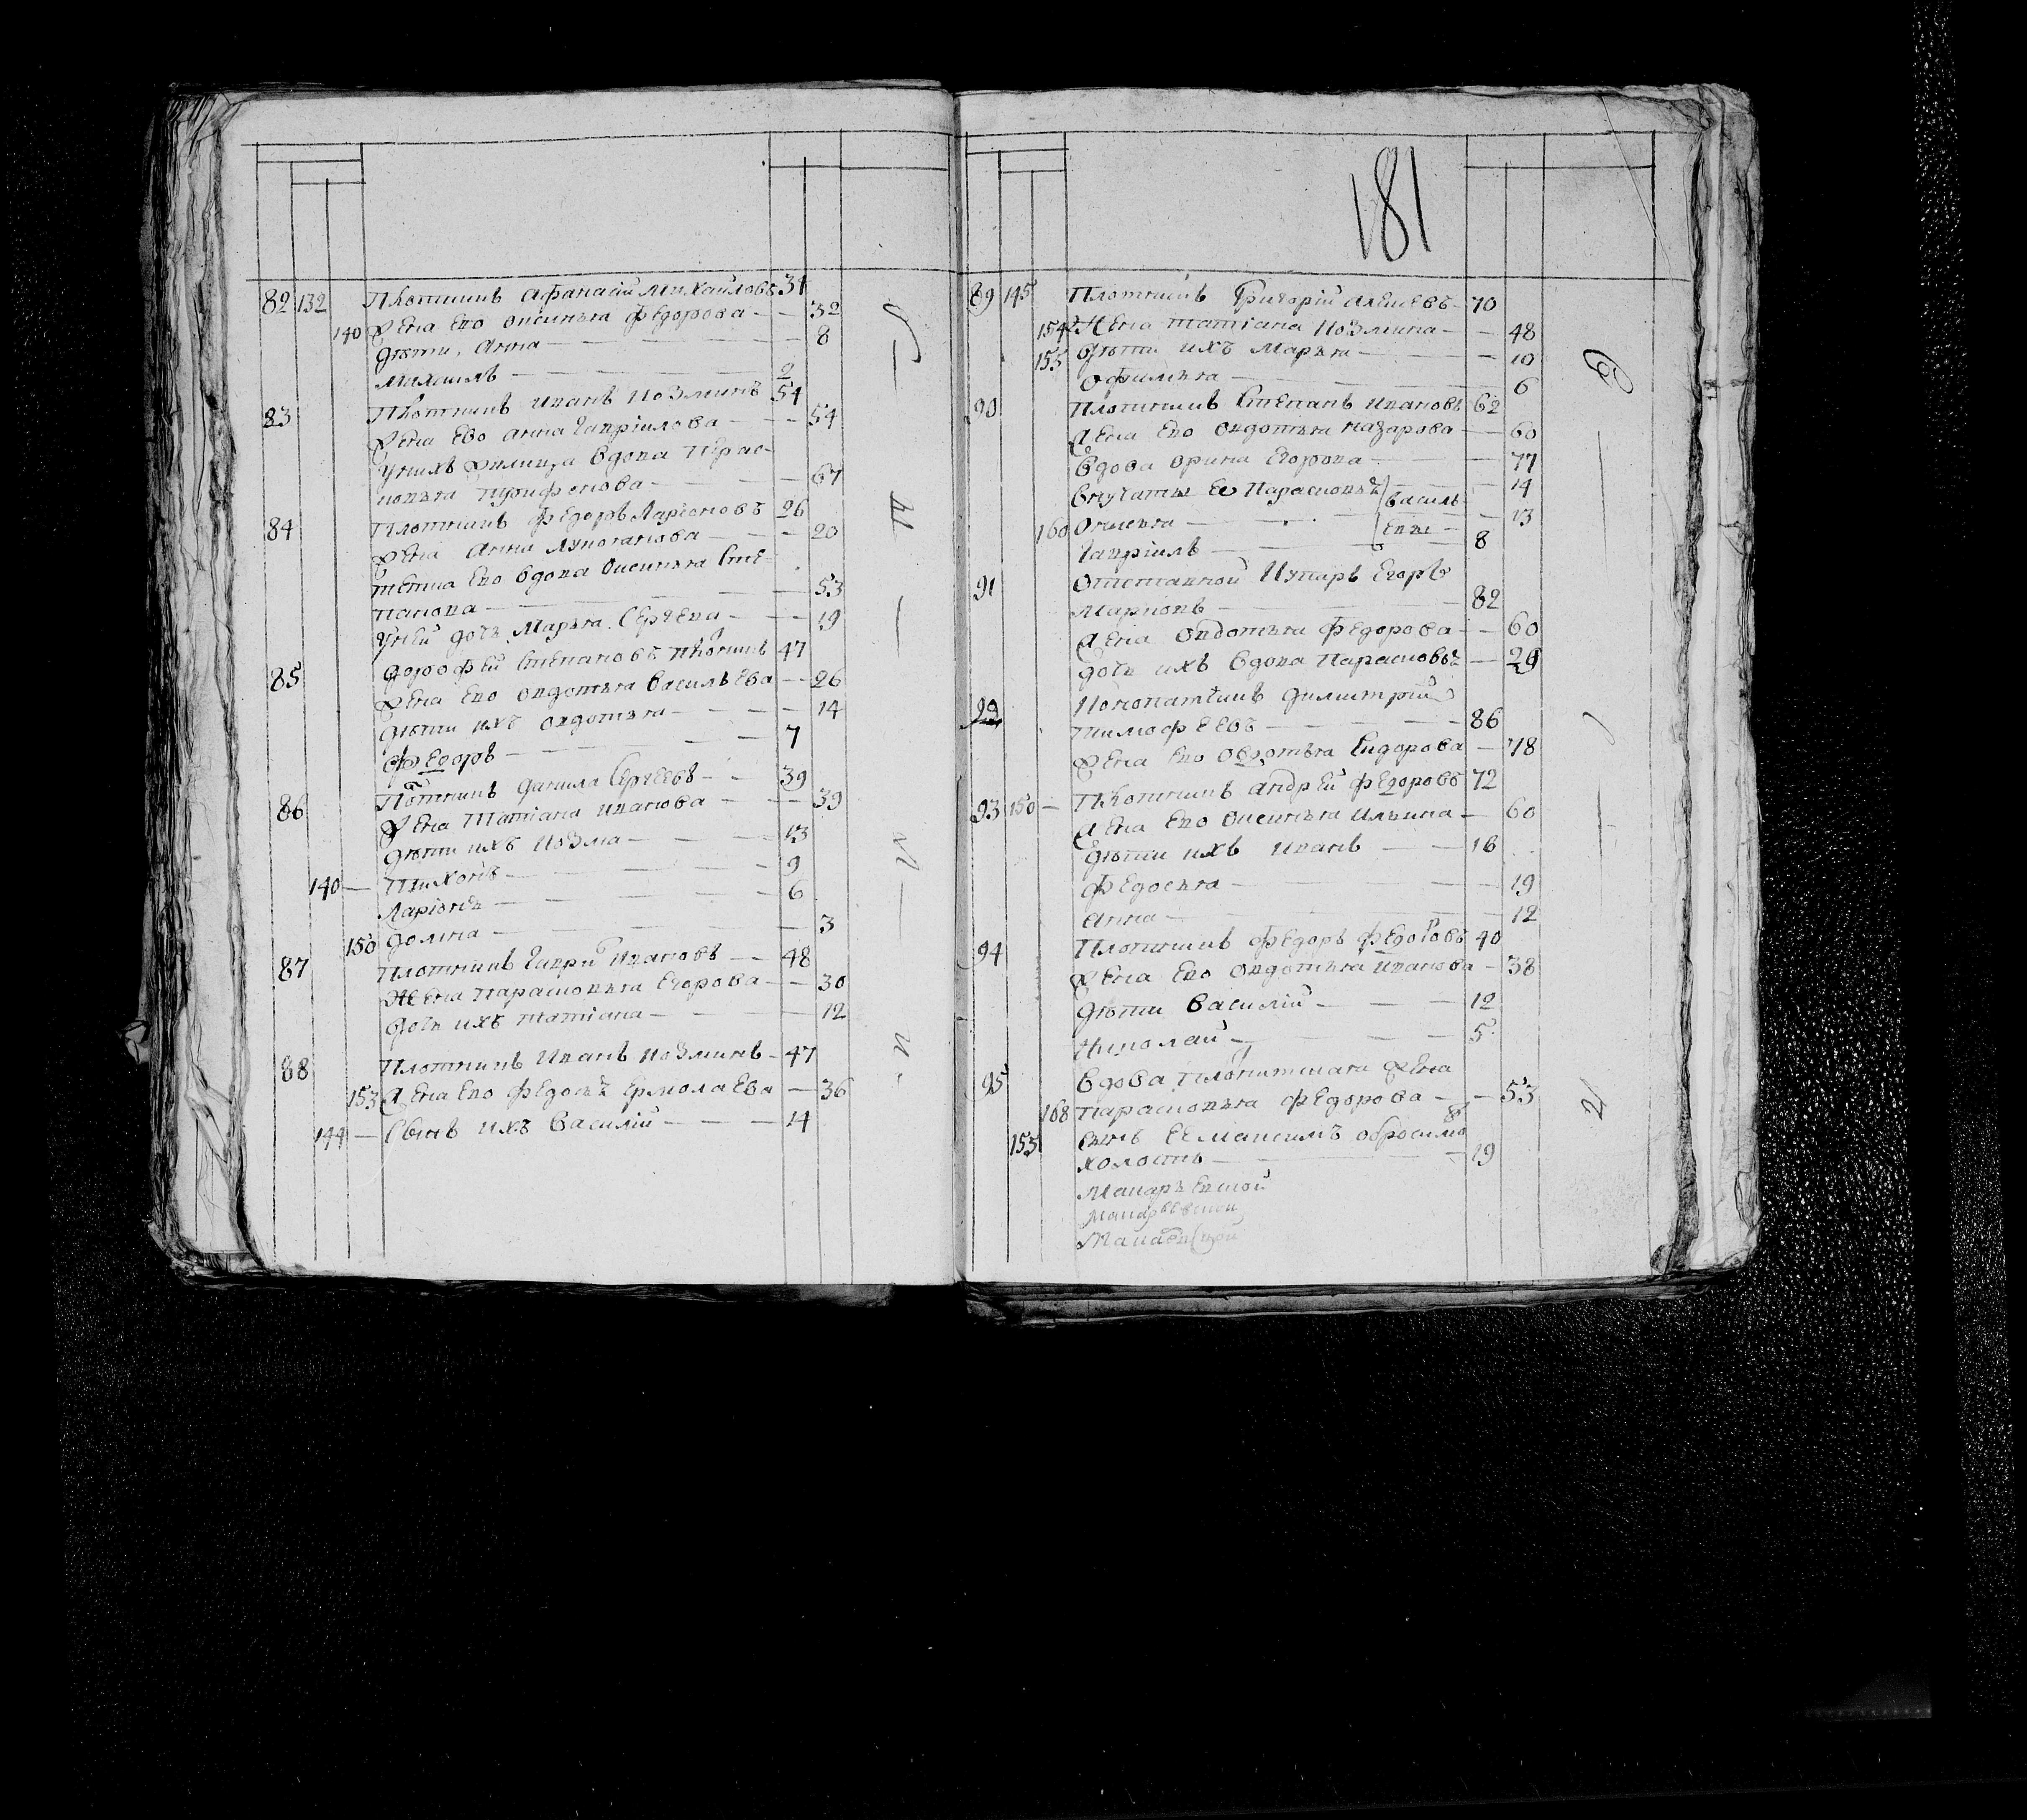 181
82 132 Плотникъ Афанасій Михайловъ 34
140 Жена ево Оксинья Федорова 32
дѣти. Анна 8
Михаилъ 2
83 Плотникъ Иванъ Козминъ 54
Жена Ево Анна Гавріилова 54
Унихъ вдова Парас-
ковья Трифонова 67
84 Плотникъ Федоръ Ларіоновъ 26
Жена Анна 20
тетка Ево вдова Оксинья Сте-
панова 53
Уней дочь Марья Сергѣева 19
85 Дорофей Степановъ плотникъ 47
Жена Ево Овдотья Васильева 26
дѣти ихъ Овдотья 14
Федоръ 7
86 Плотникъ Данила Сергеевъ 39
Жена Татіана Иванова 39
дѣти ихъ Козма 13
140 Тихонъ 9
Ларіонъ 6
150 Домна 3
87 Плотникъ Гаврии Ивановъ 48
Жена Парасковья Егорова 30
дочь ихъ Татіана 12
88 Плотникъ Иванъ Козминъ 47
153 Жена Ево Федосья Ермолаева 36
144 Сынъ ихъ Василій 14
89 145 Плотникъ Григорій Алеѯевъ 70
154 Жена Татіана Козмина 48
155 дѣти ихъ Марья 10
Офимья 6
90 Плотникъ Степанъ Ивановъ 62
Жена Ево Овдотья Назарова 60
Вдова Орина Егорова 77
Внучаты Ее Парасковья Василь 14
160 Окилина Евы 13
Гавріилъ 8
91 Отставной Егоръ
Марковъ 82
Жена Овдотья Федорова 60
дочь ихъ вдова Парасковья 29
92 Конопатчикъ Димитрій
Тимофеевъ 86
Жена Ево Овдотья Сидорова 78
93 150 Плотникъ Андрей Федоровъ 72
Жена Ево Оксинья Ильина 60
дѣти ихъ Иванъ 16
Федосья 19
Анна 12
94 Плотникъ Федоръ Федоровъ 40
Жена Ево Овдотья Иванова 38
дѣти Василій 12
Николай 5
95 Вдова плотничная Жена
168 Парасковья Федорова 53
155 Сынъ Ее Максимъ Обросимовъ
холостъ 19
Макарьевской
Макарьевской